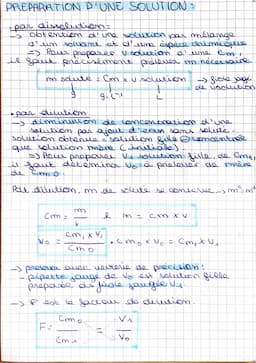 PREPARATION D'UNE SOLUTION:
• par dissolution:
→ obtention d'une solution par mélange
d'un solvant et d'une espèce chimique
→ Pour préparer V solution d'une Cm,
il faut précisément prélever m nécessaire
m soluté = Cm x V solution → fiole jaugée
de V solution
g g.L⁻¹ L
• par dilution
→ diminution de concentration d'une
solution par ajout d'eau sans soluté.
solution obtenue = solution fille ⊖ concentrée
que solution mère (initiale)
→ Pour préparer V₁ solution fille, de Cm₁,
il faut déterminer V₀ à prélever de mère
de Cm₀
Par dilution, m de soluté se conserve →
Cm = m/V & m = Cm x V
V₀ = Cm₁ x V₁ / Cm₀ • Cm₀ x V₀ = Cm₁ x V₁
→ prélever avec verrerie de précision:
- pipette jaugée de V₀ et solution fille
préparée ds fiole jaugée V₁
→ F est le facteur de dilution.
F = Cm₀ / Cm₁ = V₁ / V₀